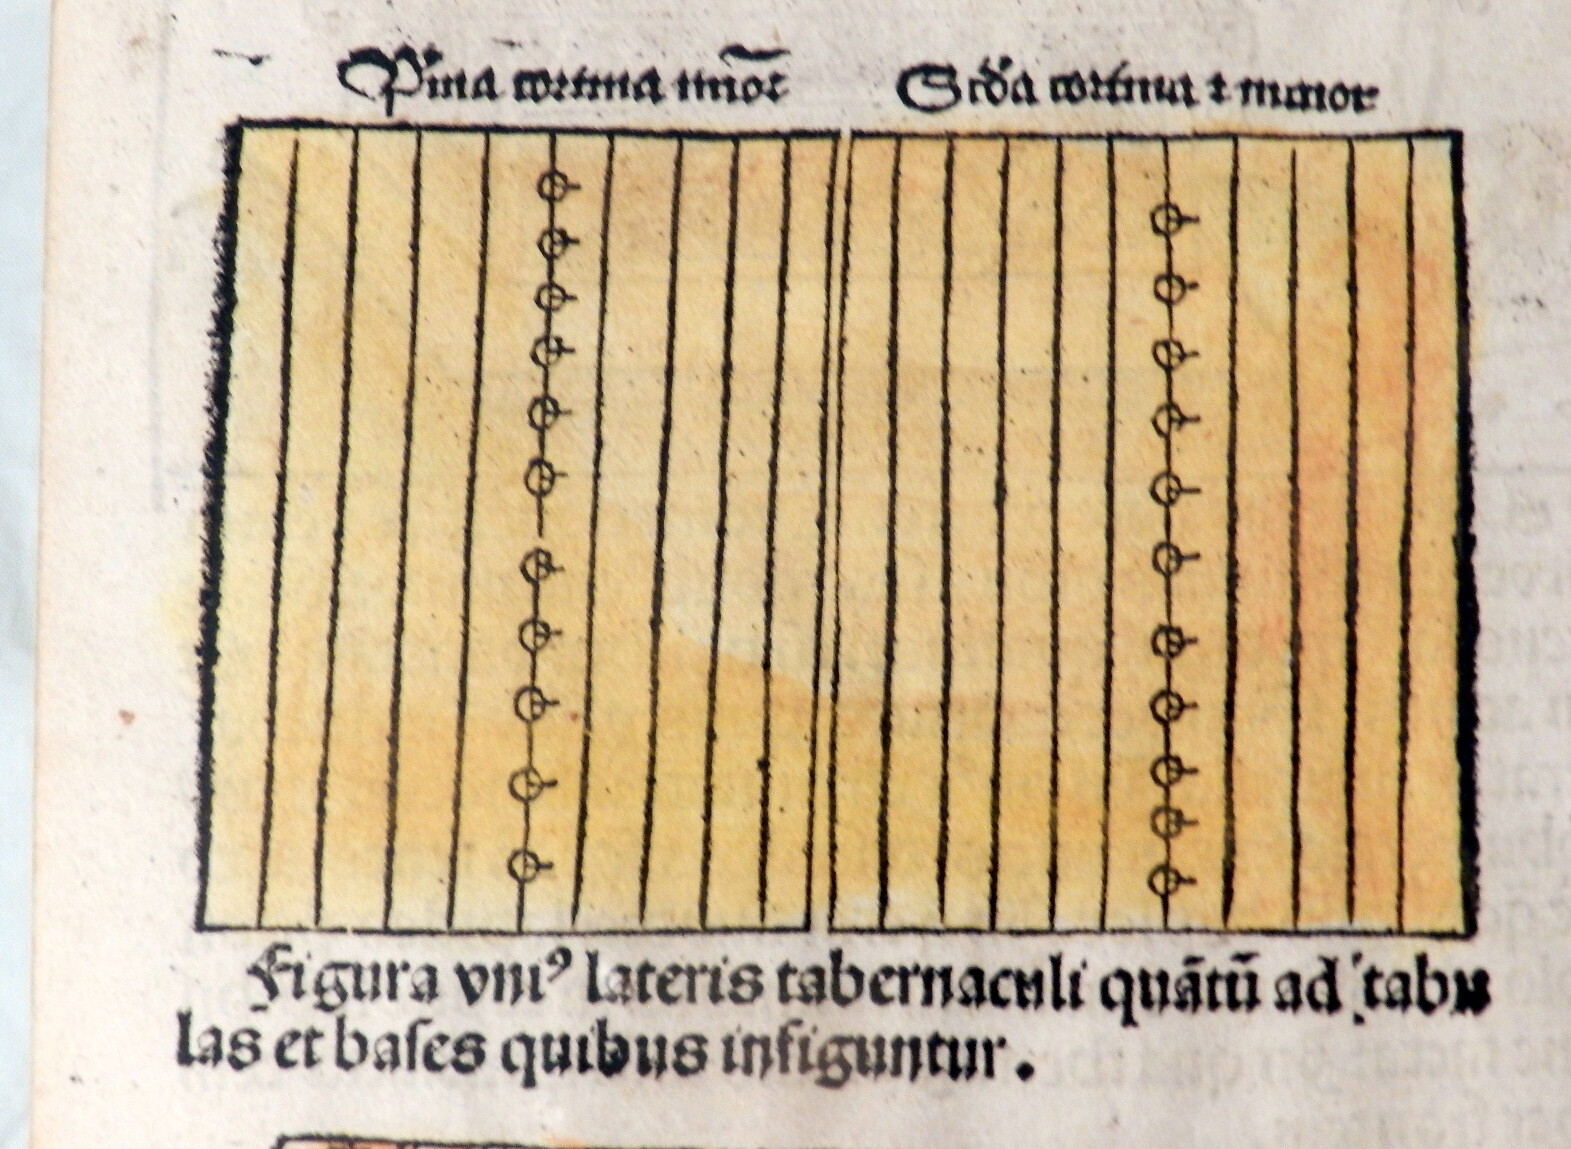 Pͥma cortina miōr
Scďa cortina ⁊ minor
Figura vniꝰ lateris tabernaculi quātū ad tabu
las et baſes quibus infiguntur.